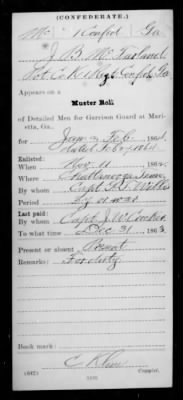 (CONFEDERATE.)
Mc 1 Confed. Ga
J. B. McFarland
Pvt. Co. K 1 Reg't Confed. Ga
Appears on a
Muster Roll
of Detailed Men for Garrison Guard at Marietta, Ga.,
for Jan & Feb, 1864.
dated Feb 29, 1864
Enlisted:
When Nov 11, 186
Where Chattanooga Tenn
By whom Capt.
Period
Last paid:
By whom Capt. J. W.
To what time Dec. 31, 1863
Present or absent Present
Remarks: For duty
Book mark:
(642) Copyist.